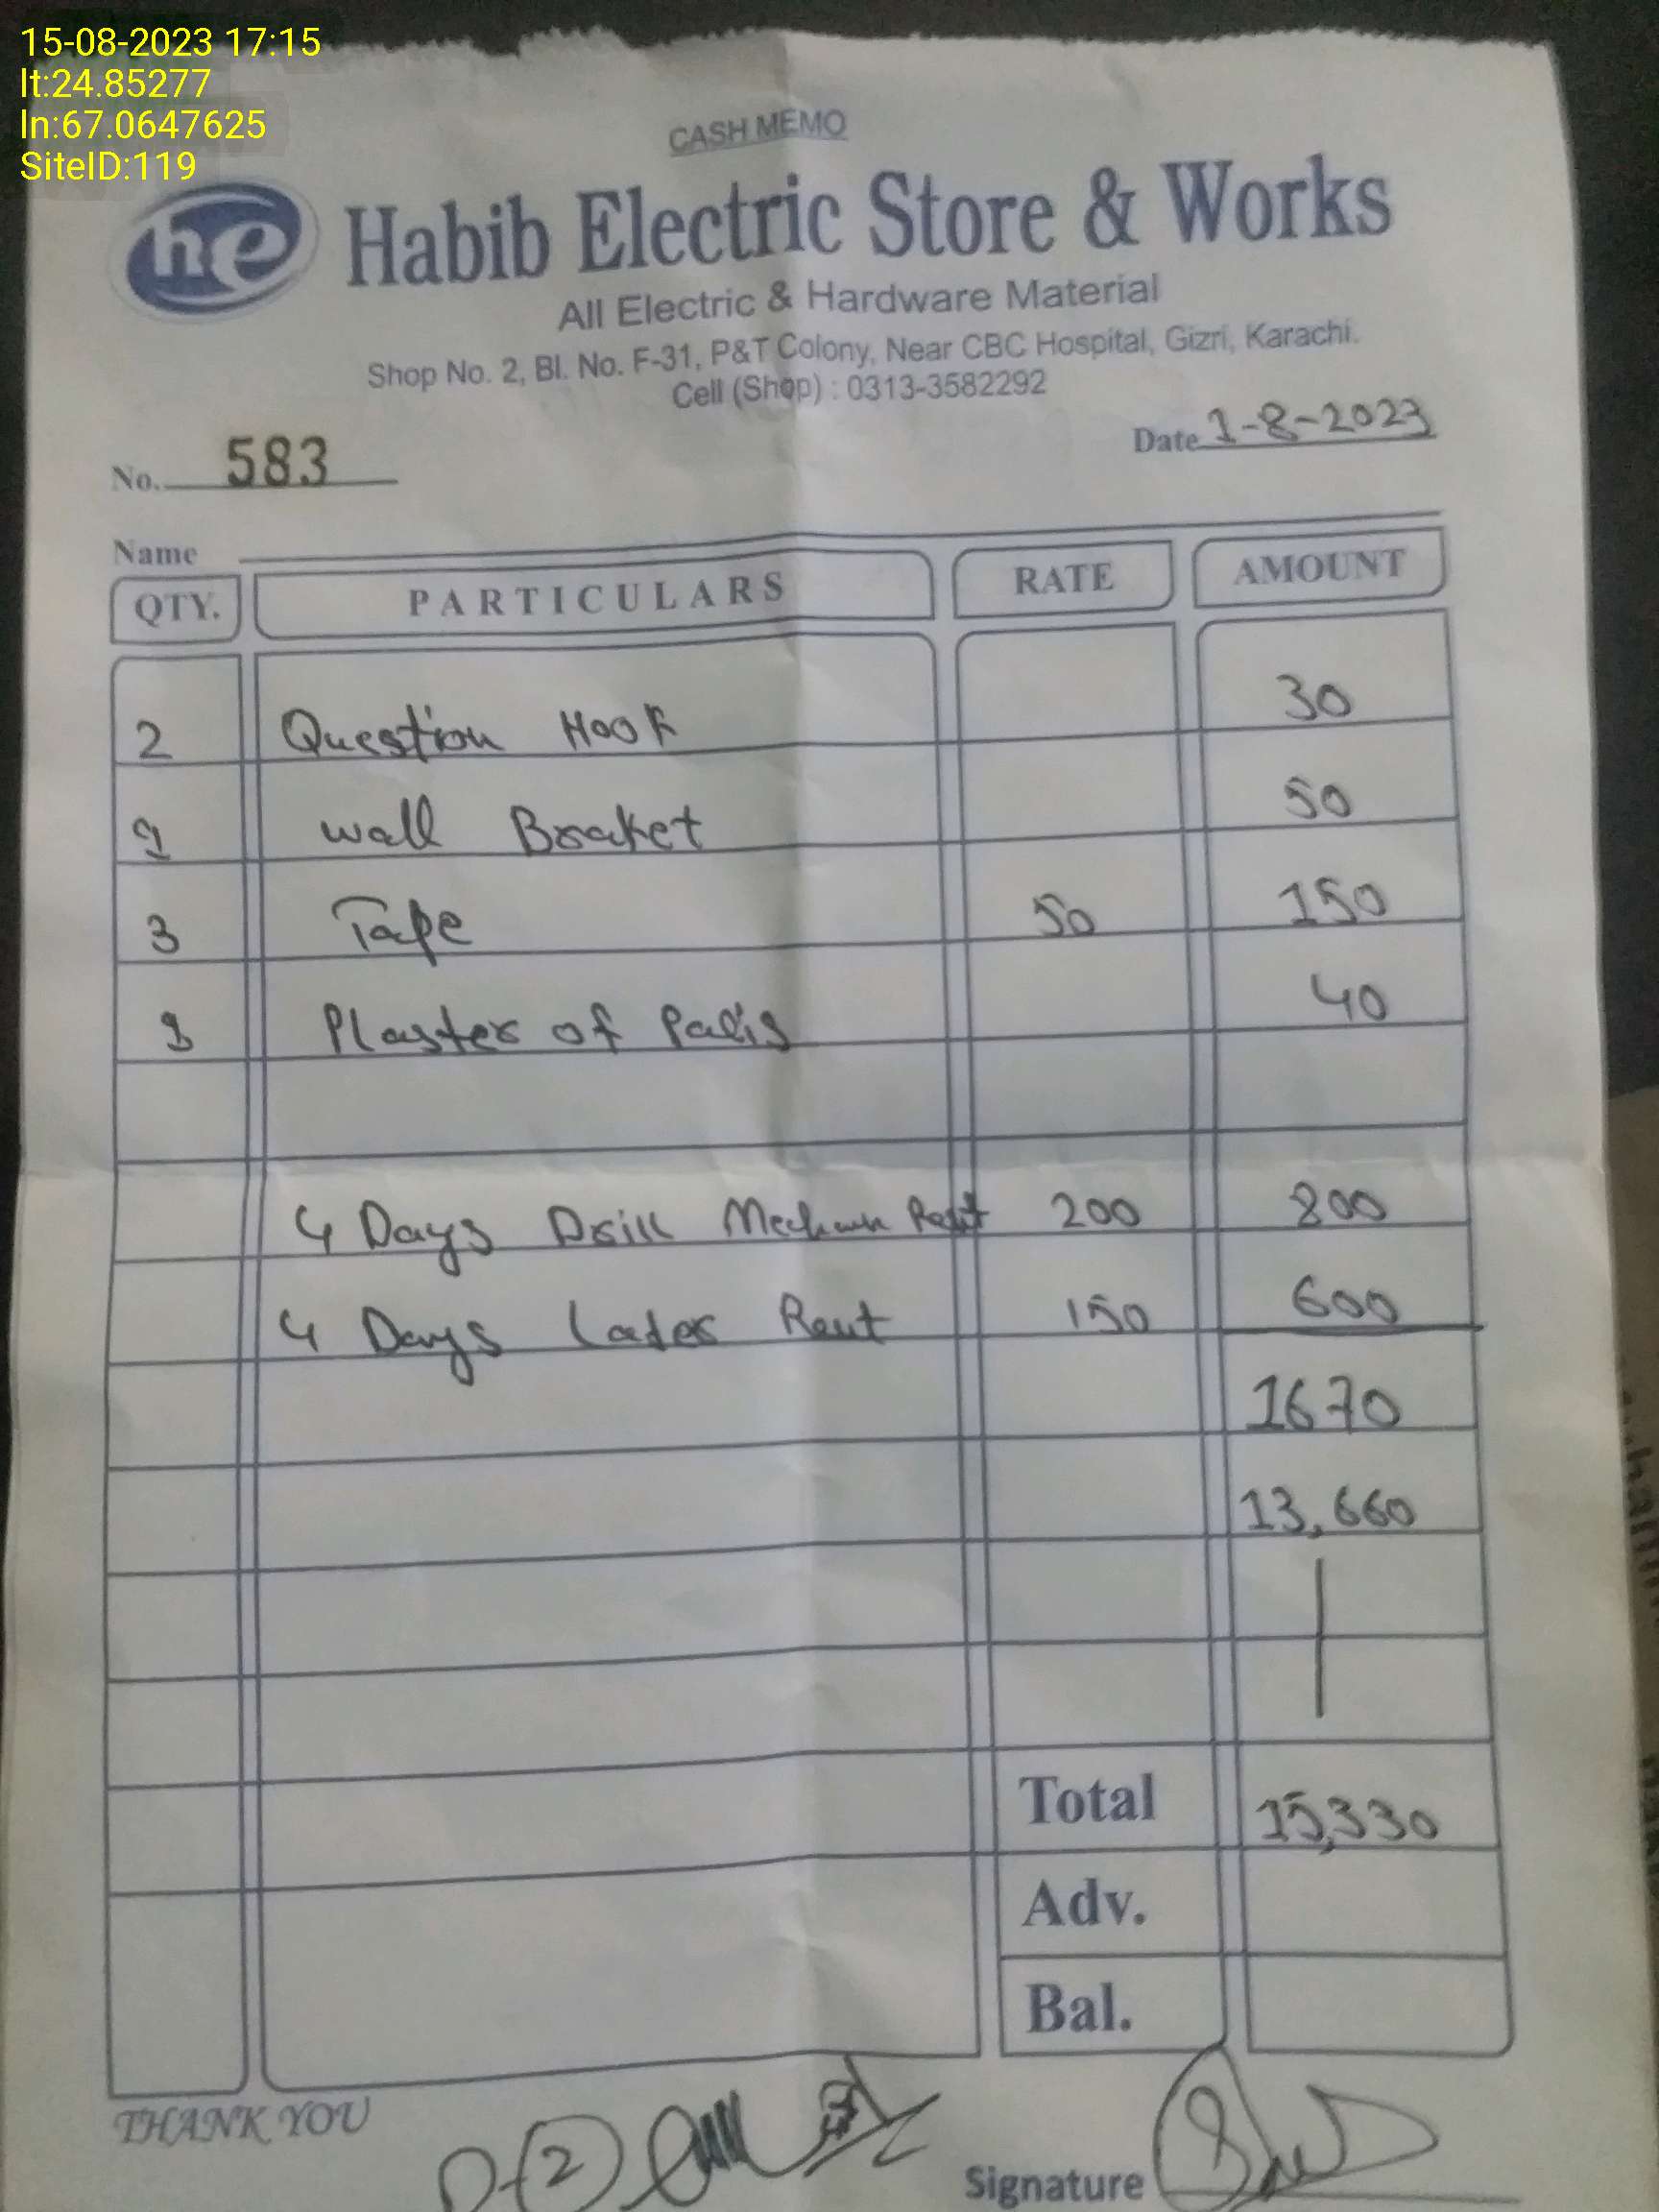 15-08-2023 17:15
lt:24.85277
ln:67.0647625
SiteID:119
CASH MEMO
he Habib Electric Store & Works
All Electric & Hardware Material
Shop No. 2, Bl. No. F-31, P&T Colony, Near CBC Hospital, Gizri, Karachi.
Cell (Shop) : 0313-3582292
No. 583 Date 1-8-2023
Name
QTY. PARTICULARS RATE AMOUNT
2 Question Hook 30
1 wall Braket 50
3 Tape 50 150
1 Plaster of Paris 40
4 Days Drill Rent 200 800
4 Days Lader Rent 150 600
1670
13,660
Total 15,330
Adv.
Bal.
THANK YOU
(2)
Signature